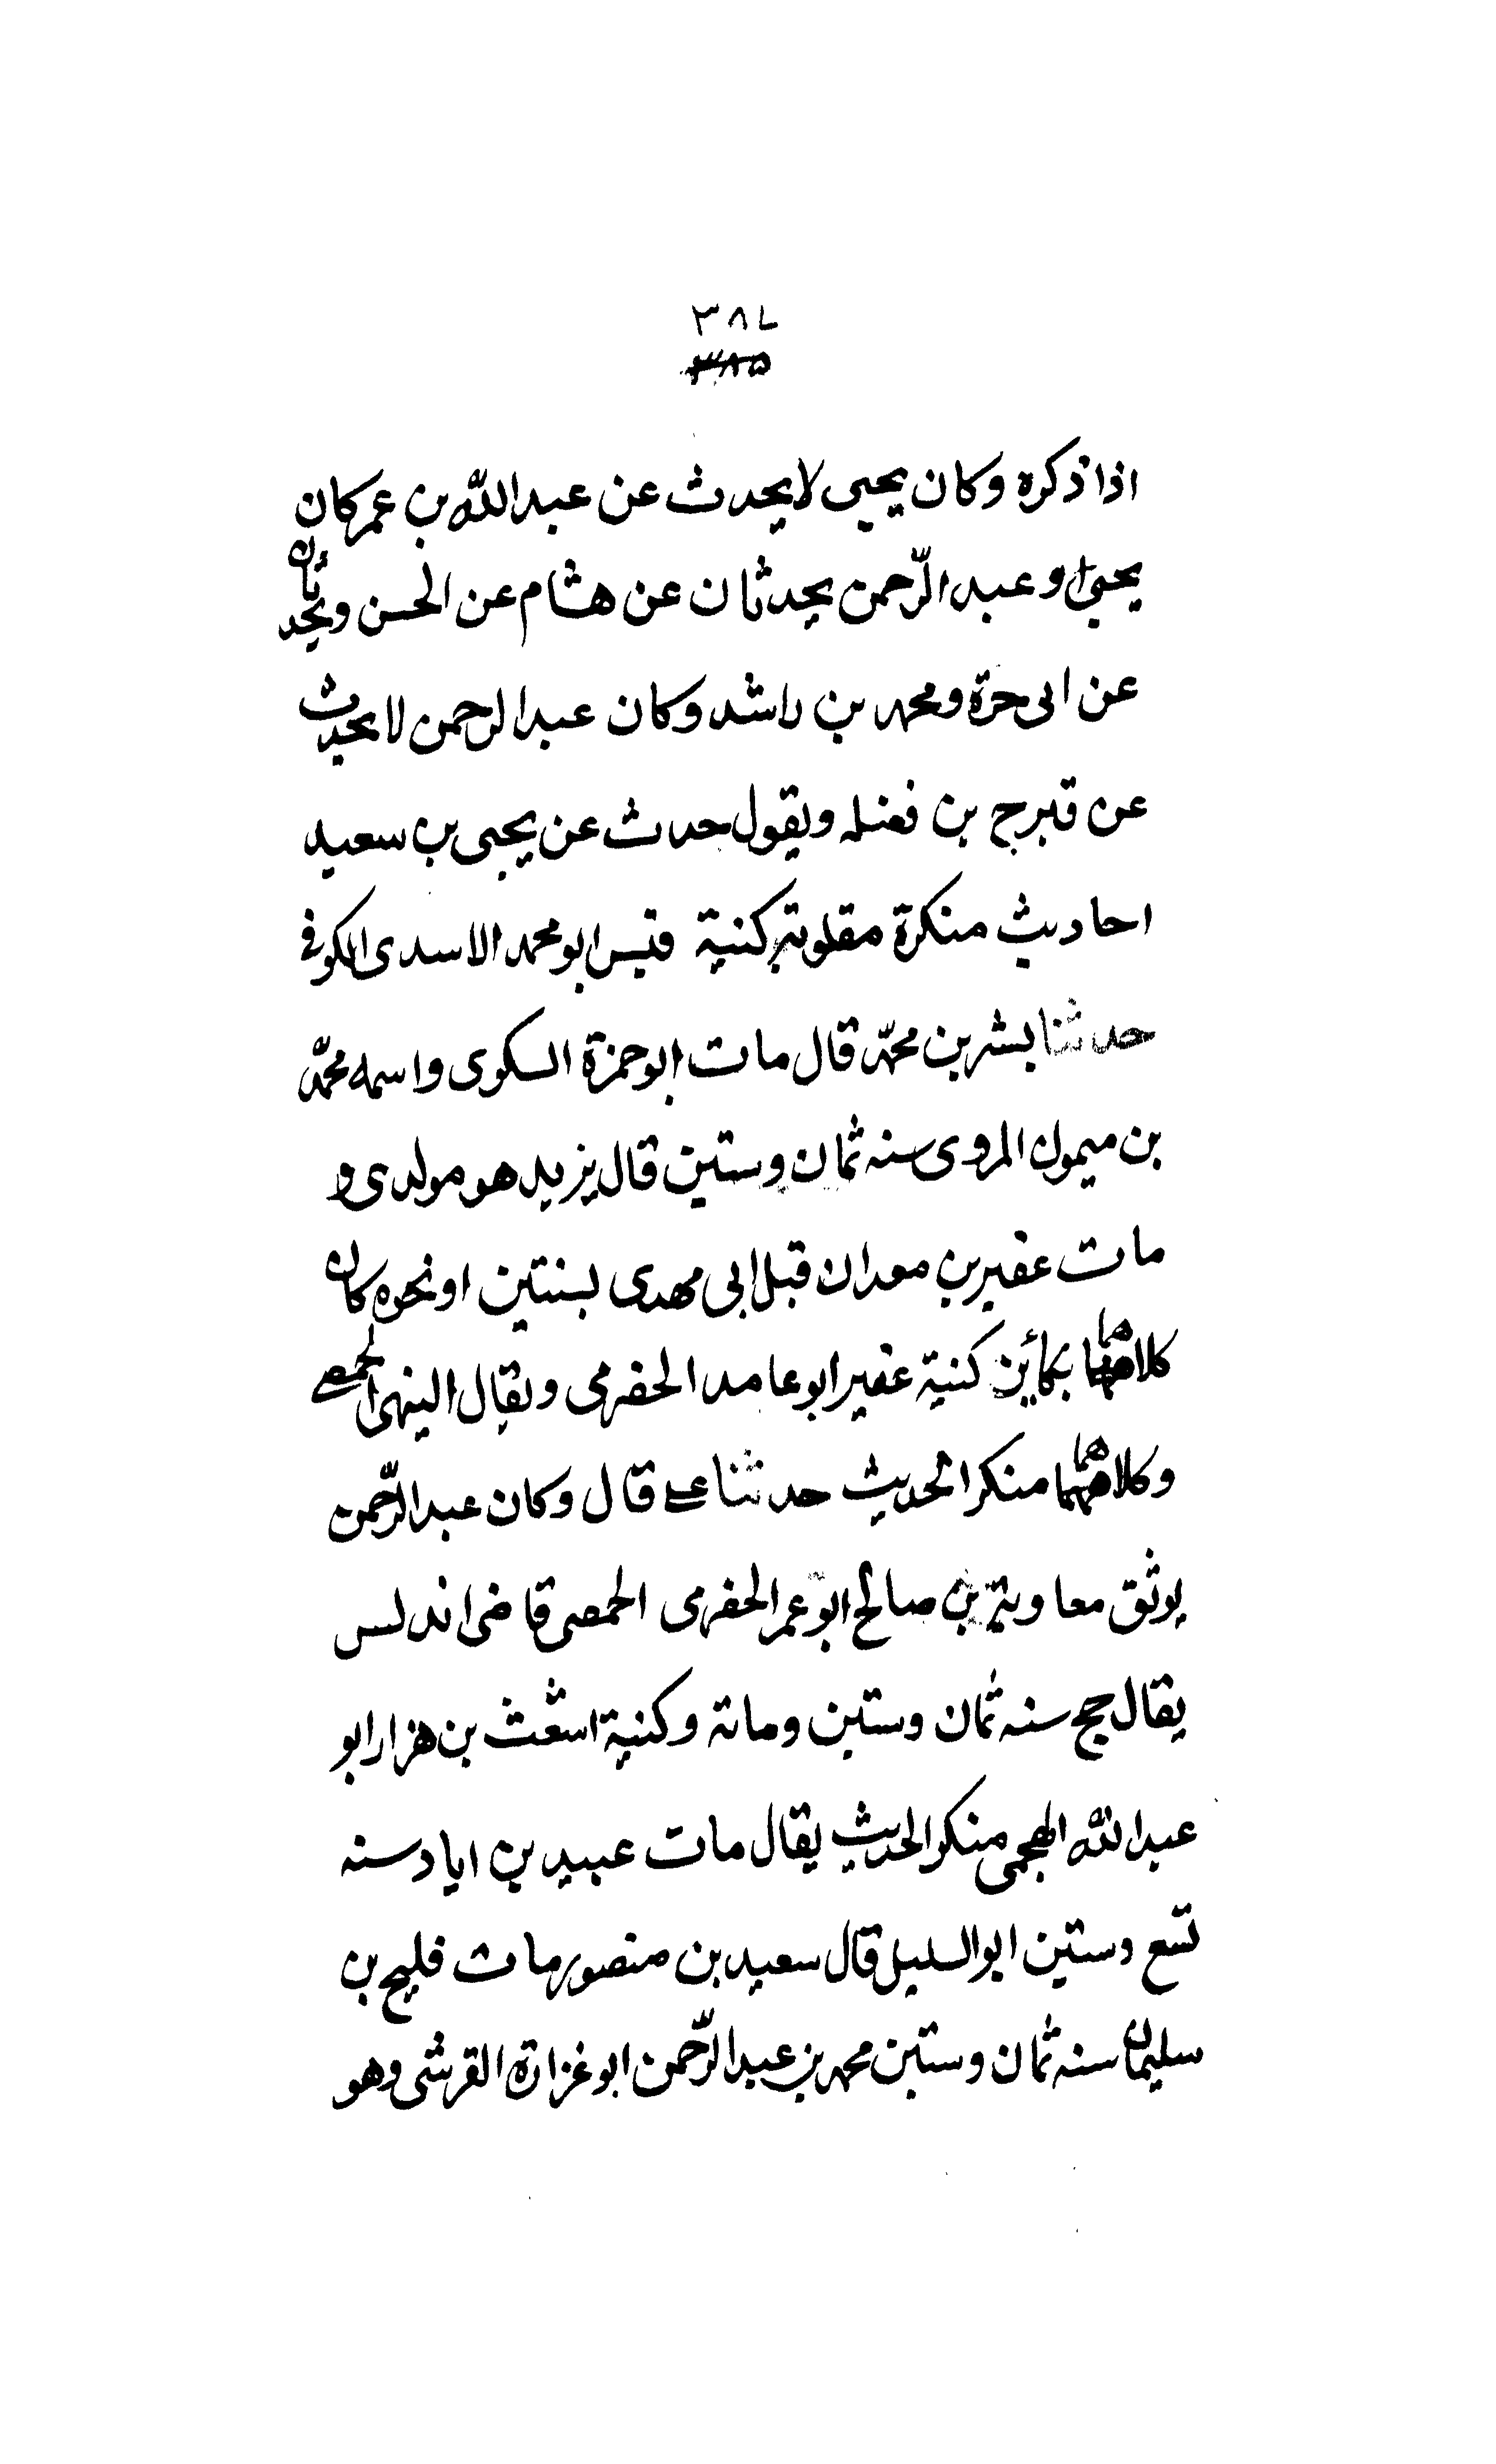 ٣٨٦
٣٨٥
اذا ذكره وكان يحيى لا يحدث عن عبد الله بن عمر كان
يحيى وعبد الرّحمن يحدثان عن هشام عن الحسن ويحدثان
عن ابى حرة ومحمد بن راشد وكان عبد الرحمن لا يحدث
عن بن فضله ويقول حدث عن يحيى بن سعيد
احاديث منكرة مقلوبة كنية قيس ابو محمد الاسدى الكوفى
حدثنا بشر بن محمّد قال مات ابو حمزة السكوى واسمه محمّد
بن ميمون المروى سنه ثمان وستين قال يزيد هو مولدى و
مات عفير بن معدان قبل ابى مهدى بسنتين او نحوه كان
كلاهما كنية عفير ابو عامد الحضرمى ويقال الحمصى
وكلاهما منكر الحديث حدثنا على قال وكان عبد الرّحمن
يوثق معاوية بن صالح ابو عمر الحضرمى الحمصى قاضى اندلس
يقال حج سنه ثمان وستين ومائة وكنية اشعث بن هزار ابو
عبد الله الهجمى منكر الحديث يقال مات عبيد بن اياد سنه
تسع وستين ابو السليل قال سعيد بن منصور مات فليح بن
سليمان سنه ثمان وستين محمد بن عبد الرّحمن ابو غزارة القرشى وهو